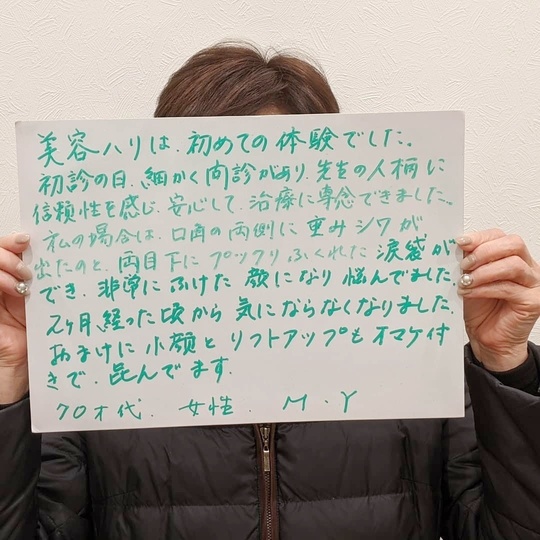 美容ハリは、初めての体験でした。
初診の日、細かく問診があり、先生の人柄に
信頼性を感じ、安心して、治療に専念できました。
私の場合は、口角の両側に重みシワが
出たのと、両目下にプックリふくれた涙袋が
でき、非常にふけた顔になり悩んでました。
2ヶ月経った頃から気にならなくなりました。
おまけに小顔とリフトアップもオマケ付
きで、喜んでます。
70才代、女性、M・Y